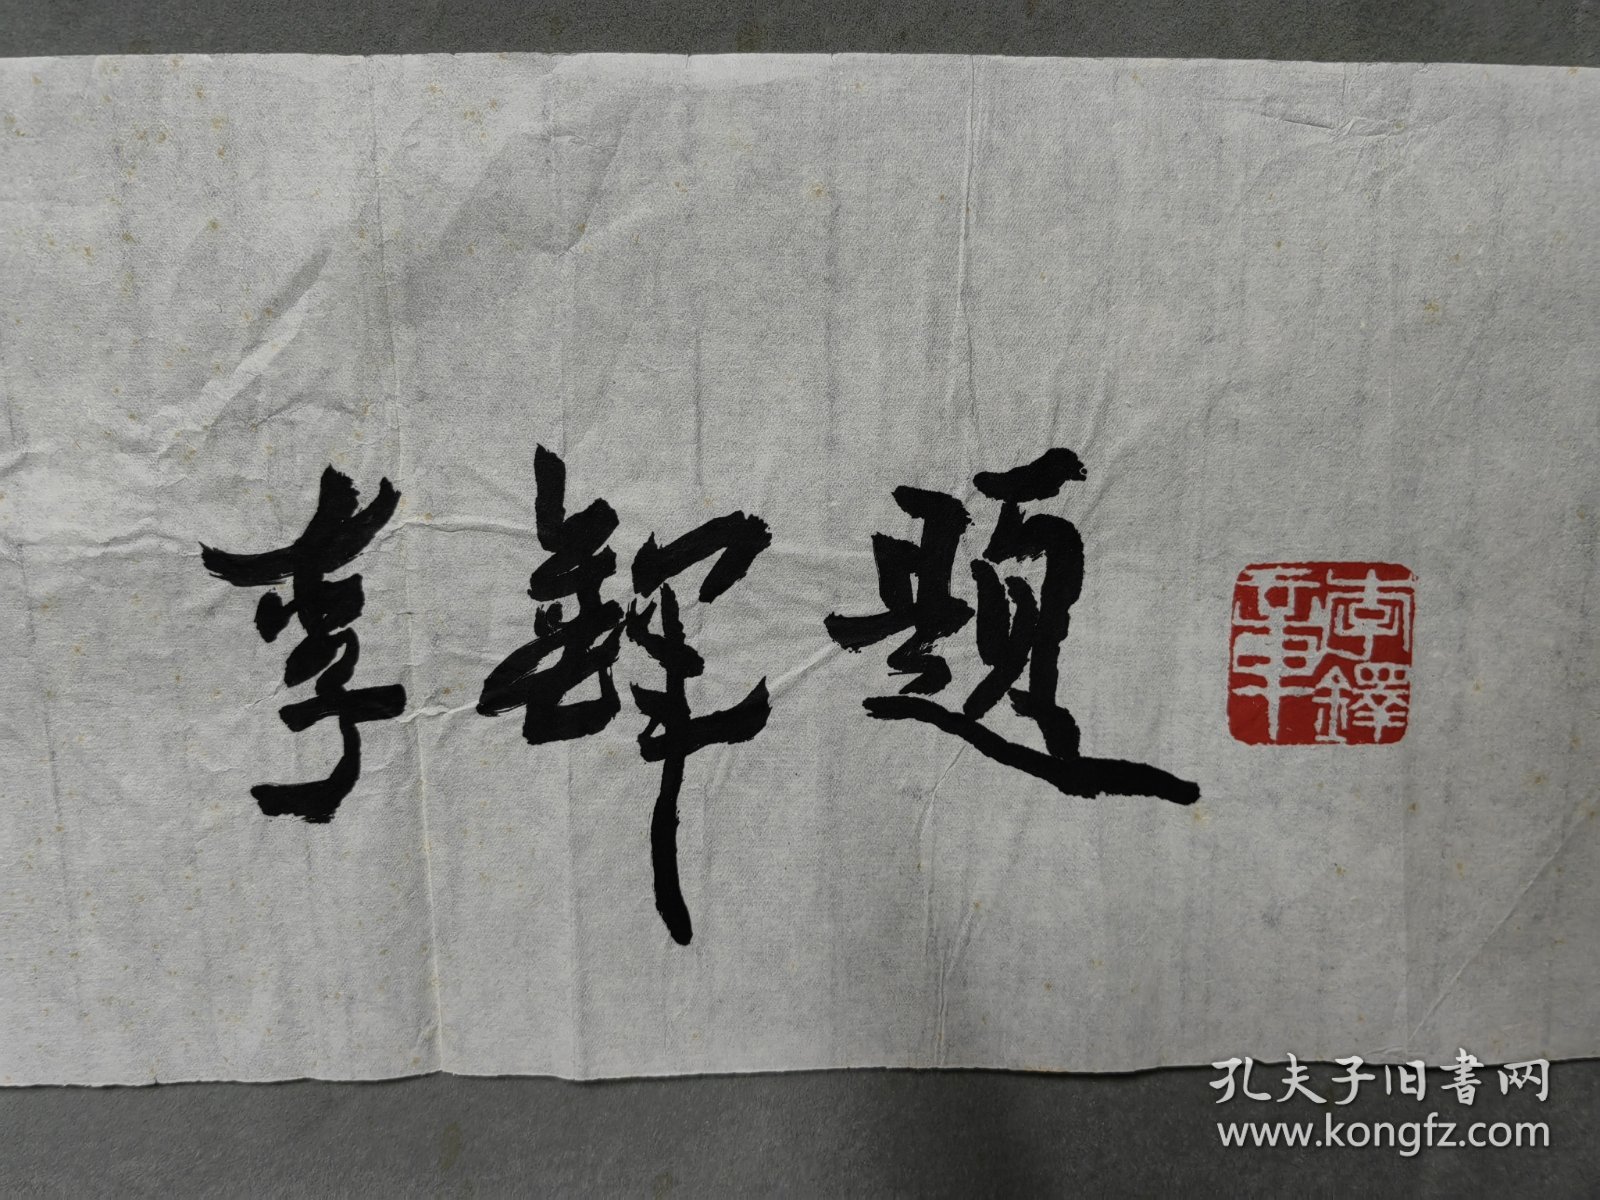 李鐸題
李鐸
孔夫子旧書网
www.kongfz.com